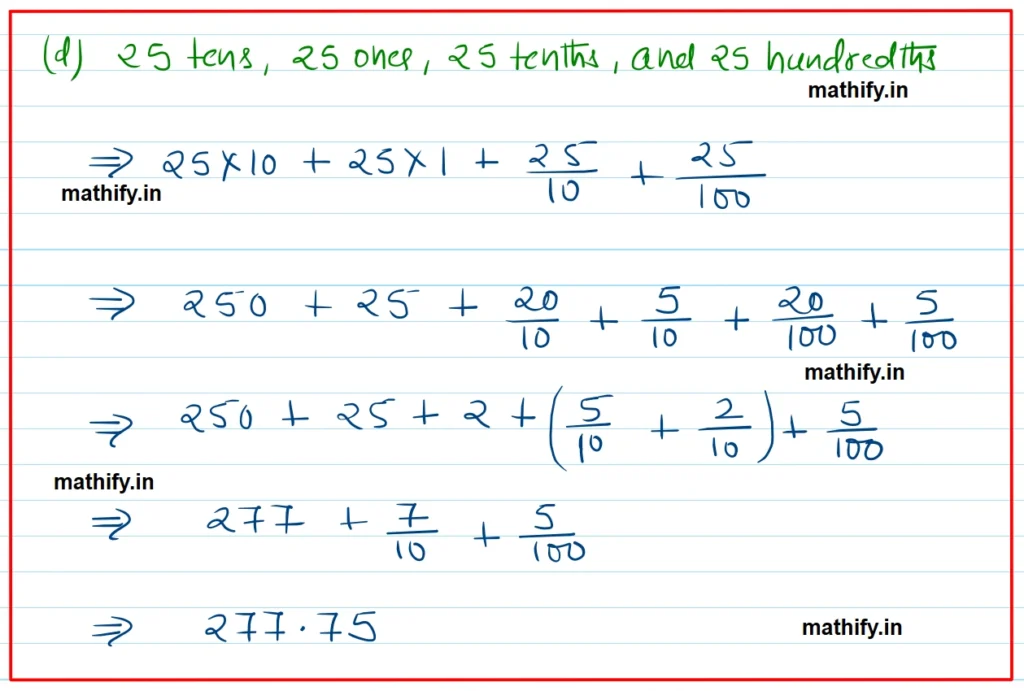 (d) 25 tens, 25 ones, 25 tenths, and 25 hundredths
mathify.in
⇒ 25×10 + 25×1 + 25/10 + 25/100
mathify.in
⇒ 250 + 25 + 20/10 + 5/10 + 20/100 + 5/100
mathify.in
⇒ 250 + 25 + 2 + (5/10 + 2/10) + 5/100
mathify.in
⇒ 277 + 7/10 + 5/100
⇒ 277.75
mathify.in